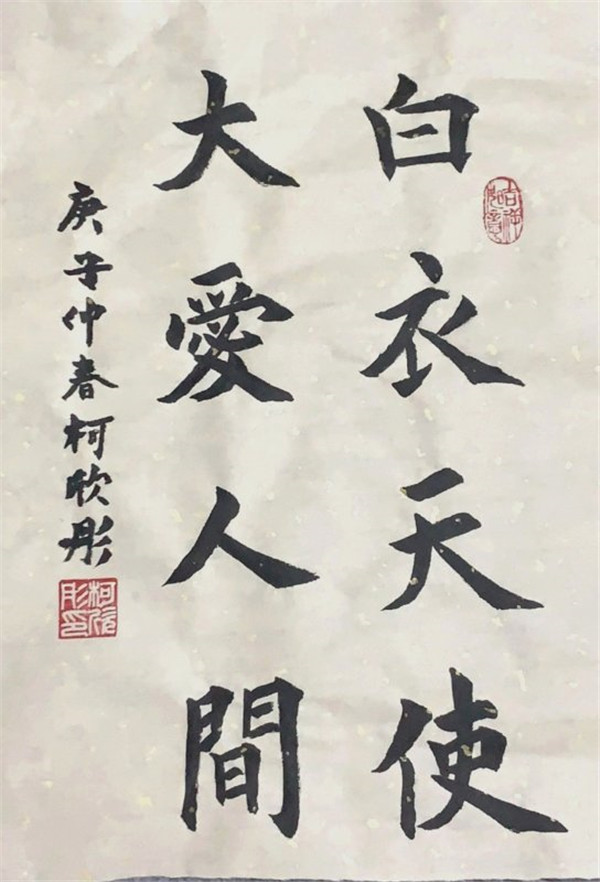 白衣天使
大愛人間
庚子仲春柯欣彤
吉祥如意
柯欣彤印